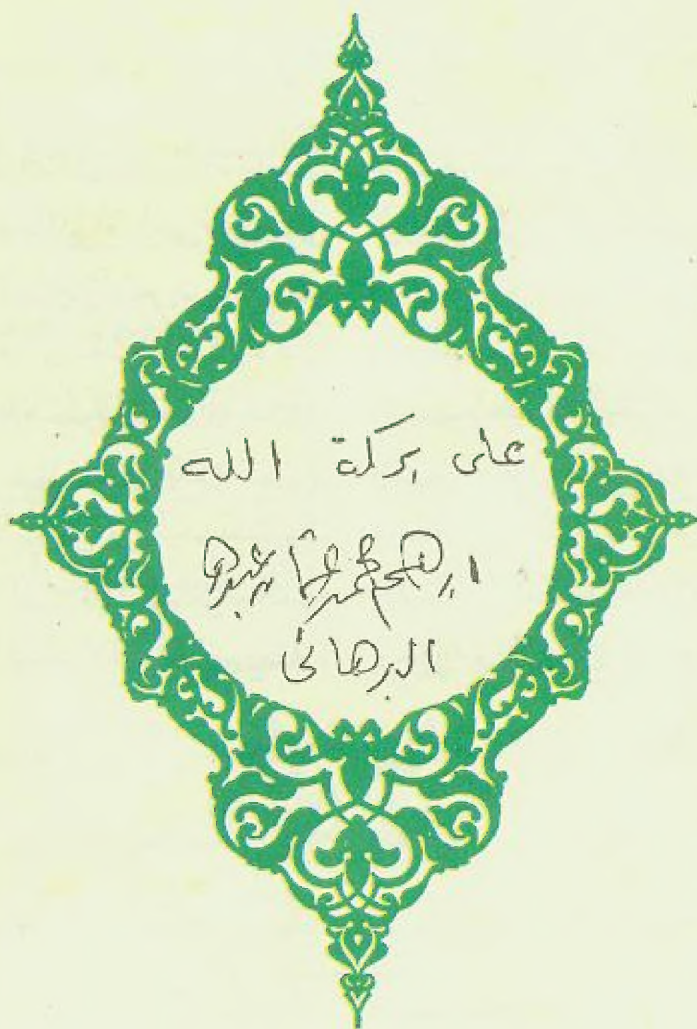 على بركة الله
ابرهيم محمد عثمان عبده
البرهانى